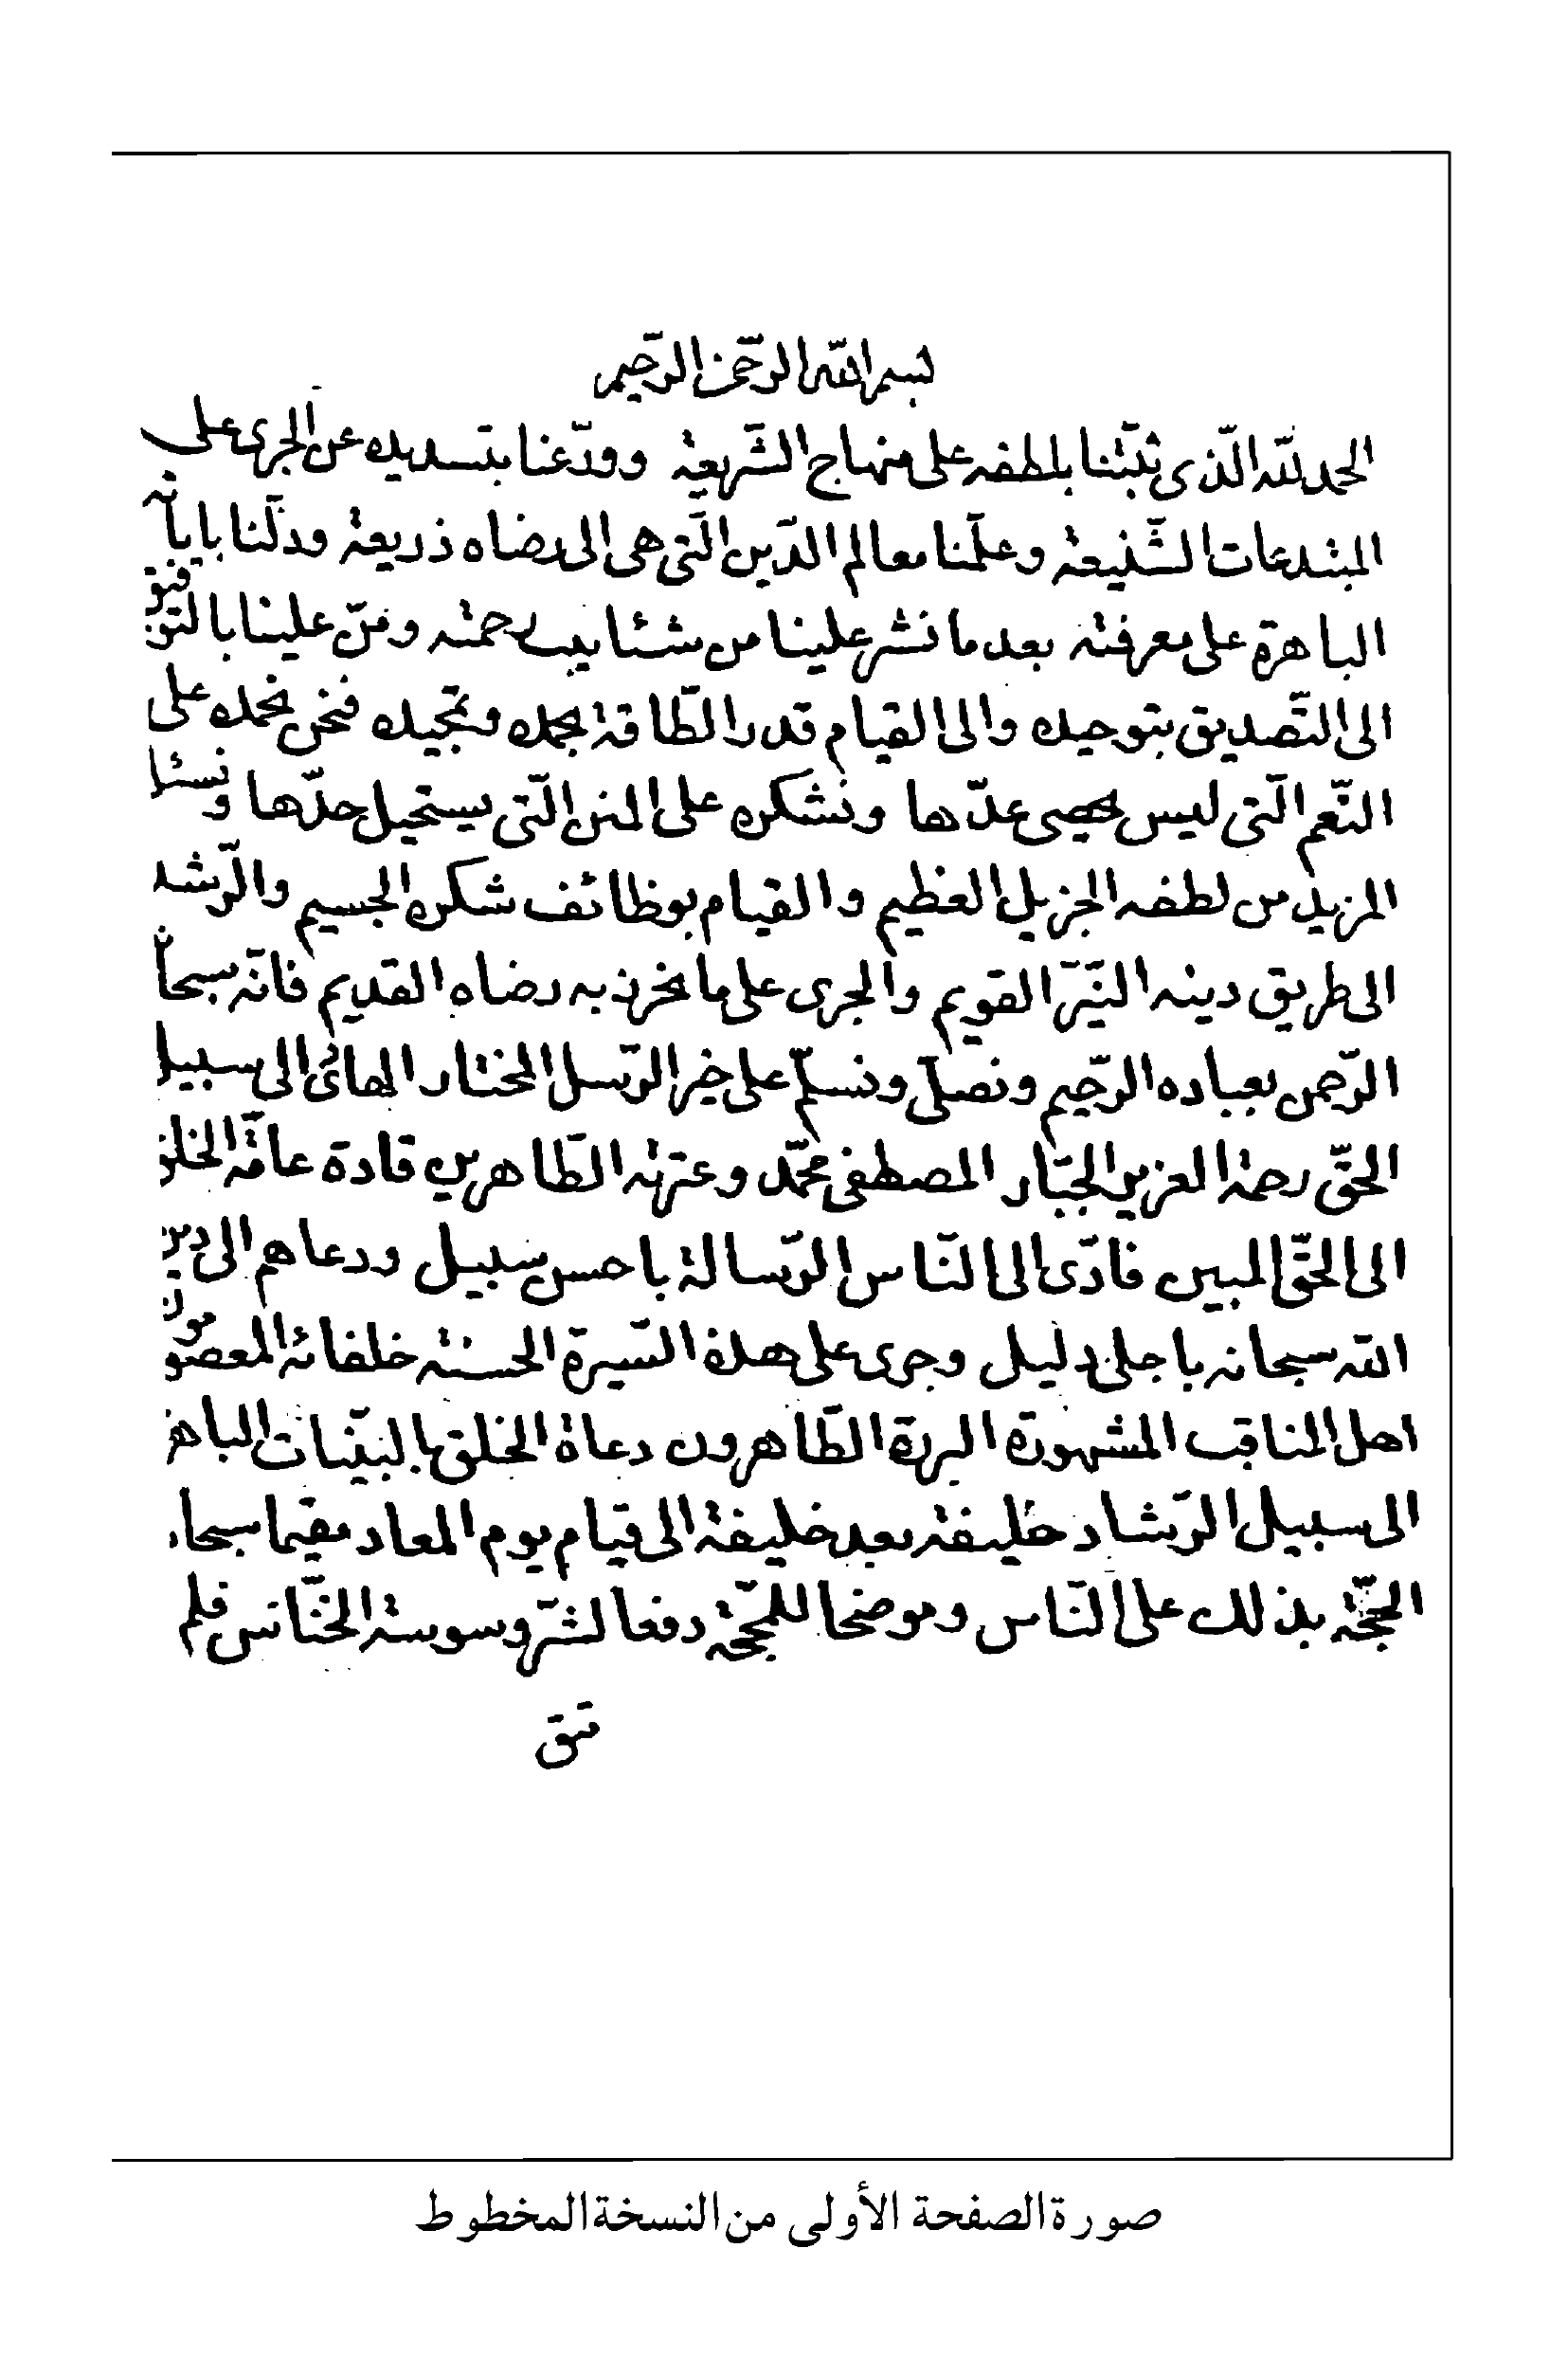 بسم الله الرّحمن الرّحيم
الحمد لله الّذى ثبّتنا بلطفه على منهاج الشّريعة وودّعنا بتسديده عن الجرى على
المبتدعات الشّنيعة وعلّمنا معالم الدّين الّتى هى الى رضاه ذريعة ودلّنا باياته
الباهرة على معرفته بعد ما نشر علينا من شئابيب رحمته ومنّ علينا بالتّوفيق
الى التّصديق بتوحيده والى القيام قدر الطّاقة بحمده وتمجيده فنحن نحمده على
النّعم الّتى ليس يحصى عدّها ونشكره على المنن الّتى يستحيل حدّها ونسئل
المزيد من لطفه الجزيل العظيم والقيام بوظائف شكره الجسيم والرّشد
الى طريق دينه النيّر القويم والجرى على ما نحرز به رضاه القديم فانّه سبحانه
الرّحمن بعباده الرّحيم ونصلّى ونسلّم على خير الرّسل المختار الهادى الى سبيل
الحقّ رحمة العزيز الجبّار المصطفى محمّد وعترته الطّاهرين قادة عامّة الخلق
الى الحقّ المبين فادّى الى النّاس الرّسالة باحسن سبيل ودعاهم الى دين
الله سبحانه باجلى دليل وجرى على هذه السّيرة الحسنة خلفائه المعصومون
اهل المناقب المشهورة البررة الطّاهرون دعاة الخلق بالبيّنات الباهرة
الى سبيل الرّشاد خليفة بعد خليفة الى قيام يوم المعاد مقيما سبحانه
الحجّة بذلك على النّاس وموضحا للمحجّة دفعا لشرّ وسوسة الخنّاس فلم
تبق
صورة الصفحة الأولى من النسخة المخطوط